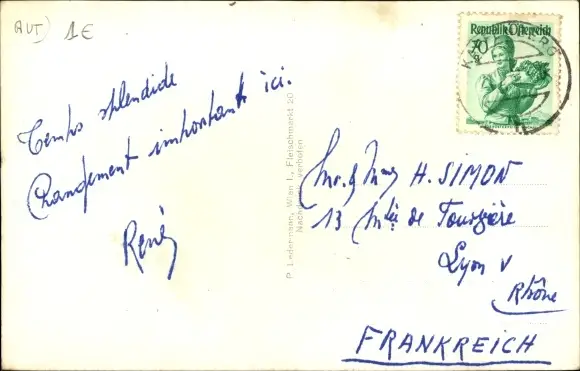 AUT) 1€
Temps splendide
Changement important ici.
René
P. Ledermann, Wien I., Fleischmarkt 20
Nachdruck verboten
Republik Österreich
70
Mr. & Mme H. SIMON
13 Mtée de
Lyon V
Rhône
FRANKREICH